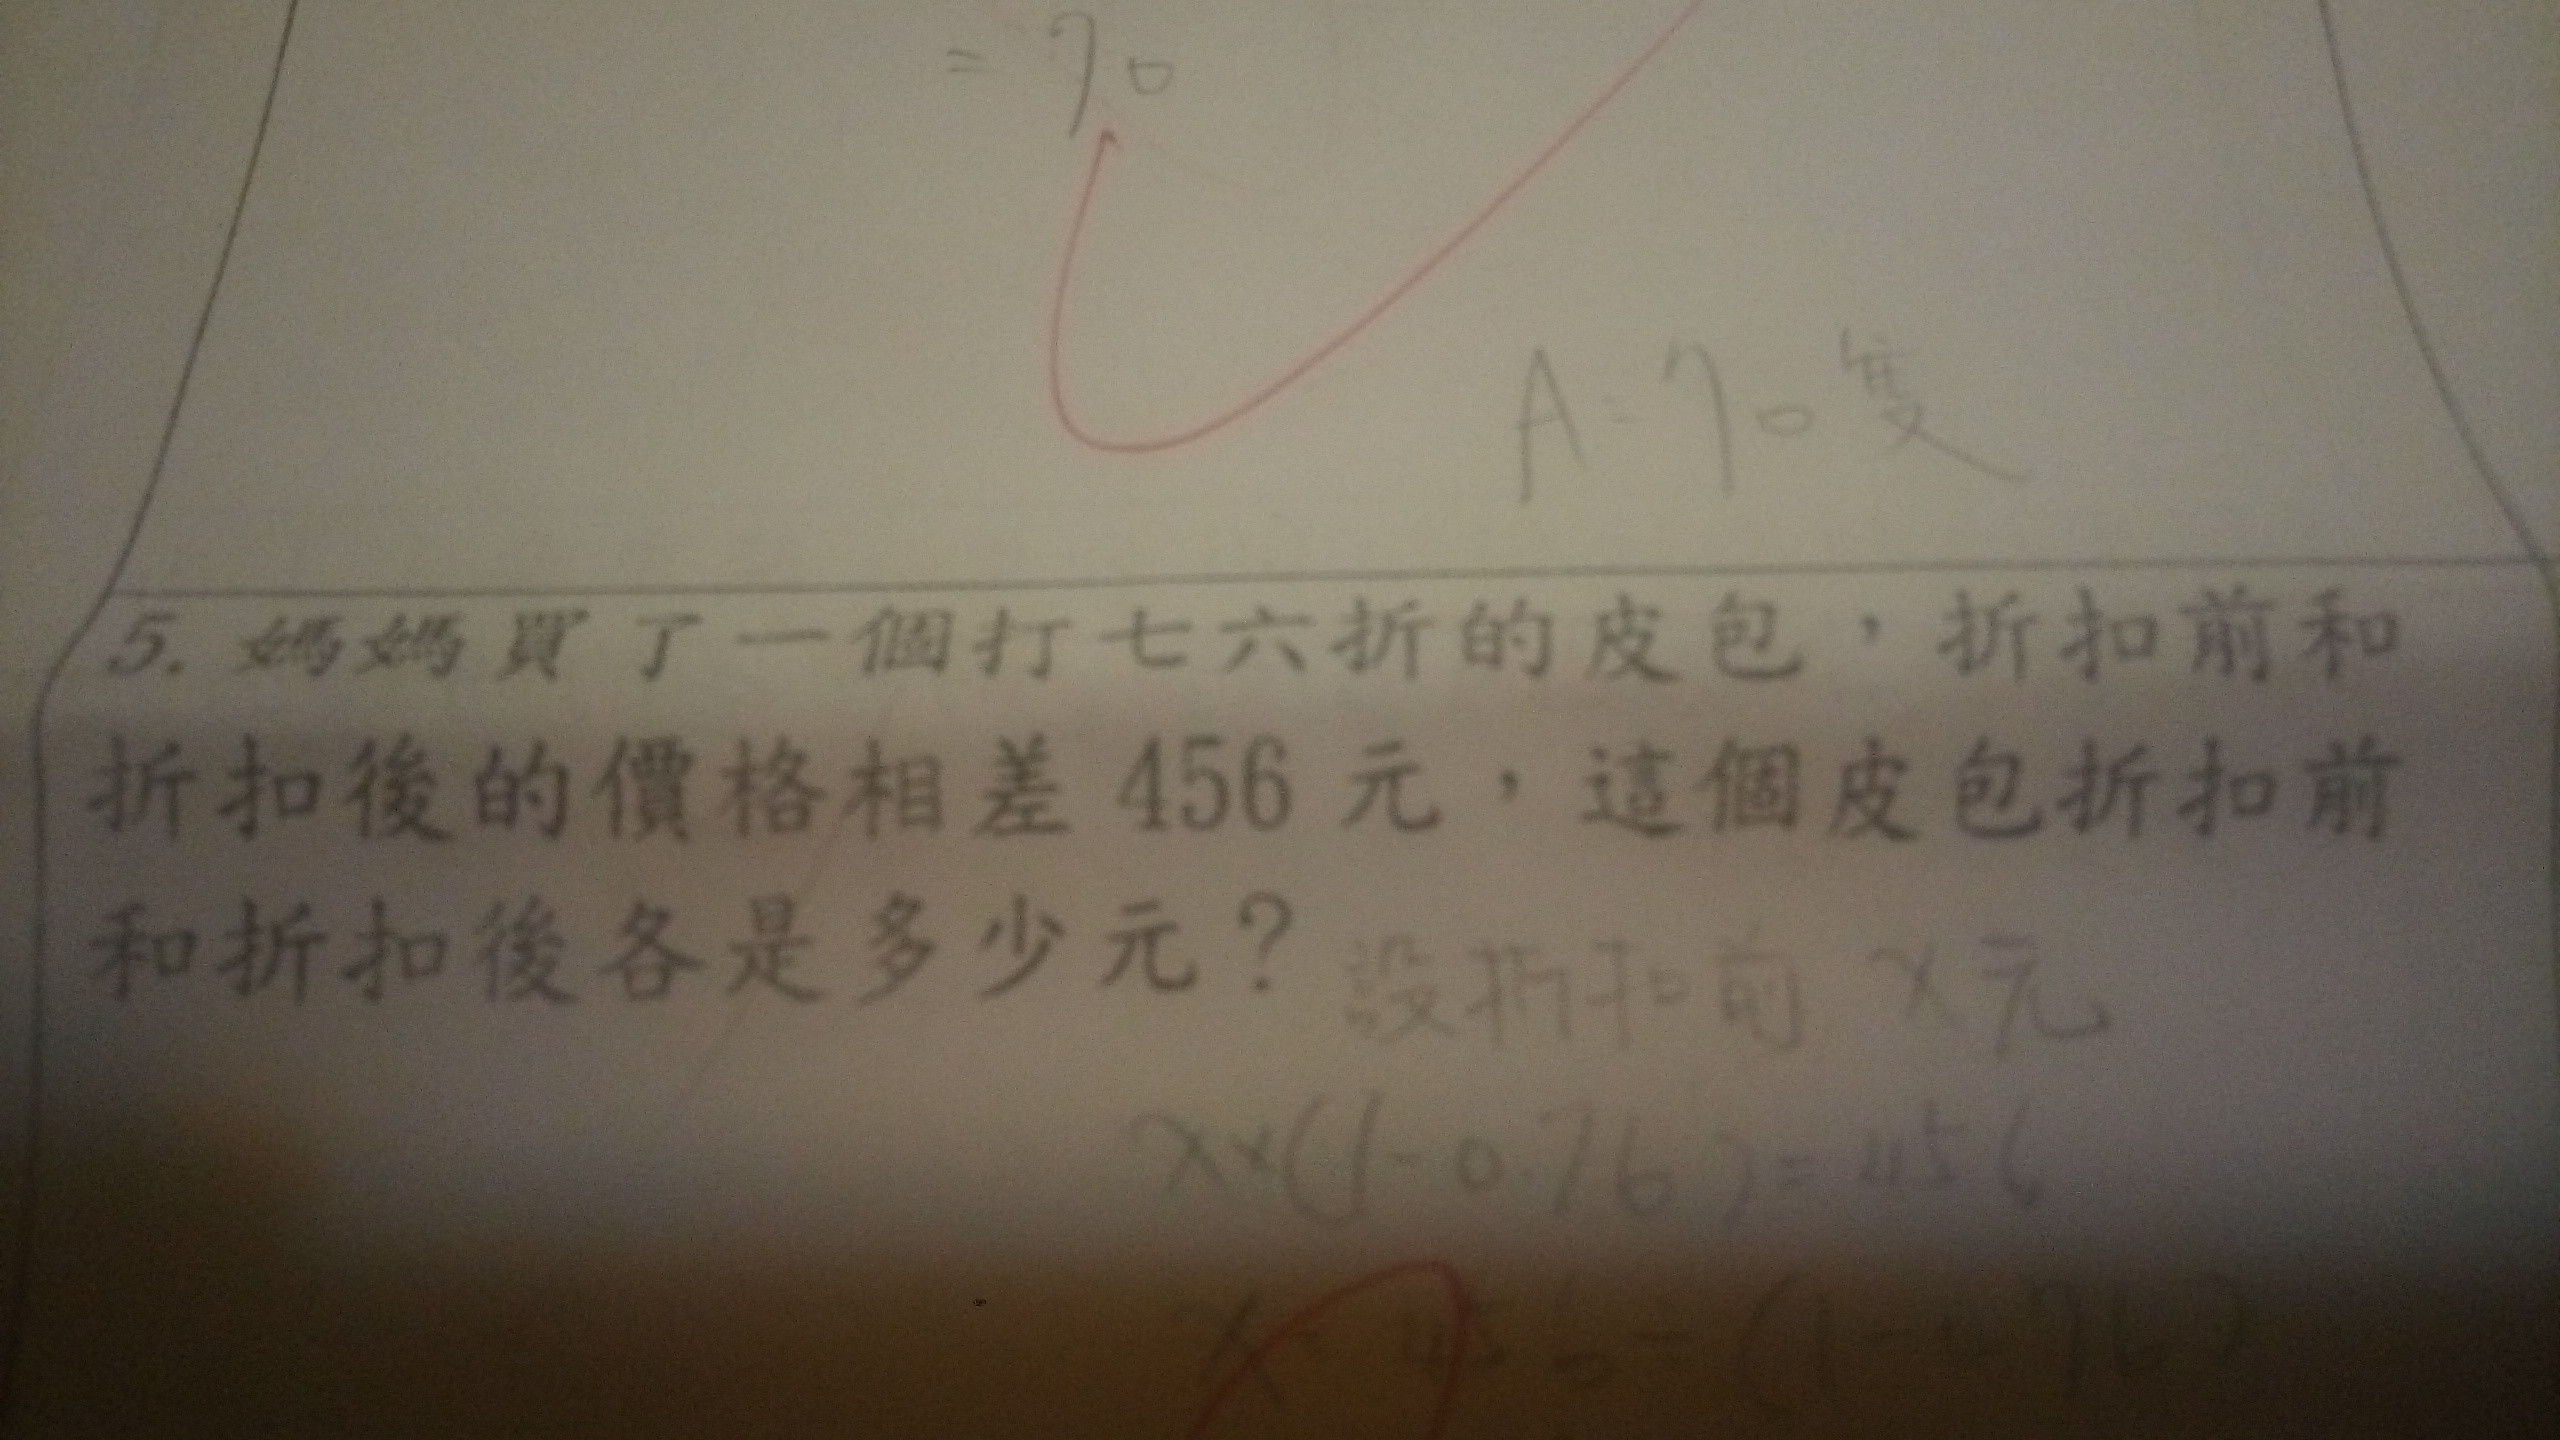 = 70
A=70隻
5. 媽媽買了一個打七六折的皮包，折扣前和
折扣後的價格相差 456 元，這個皮包折扣前
和折扣後各是多少元？
設折扣前 x元
x×(1-0.76)=456